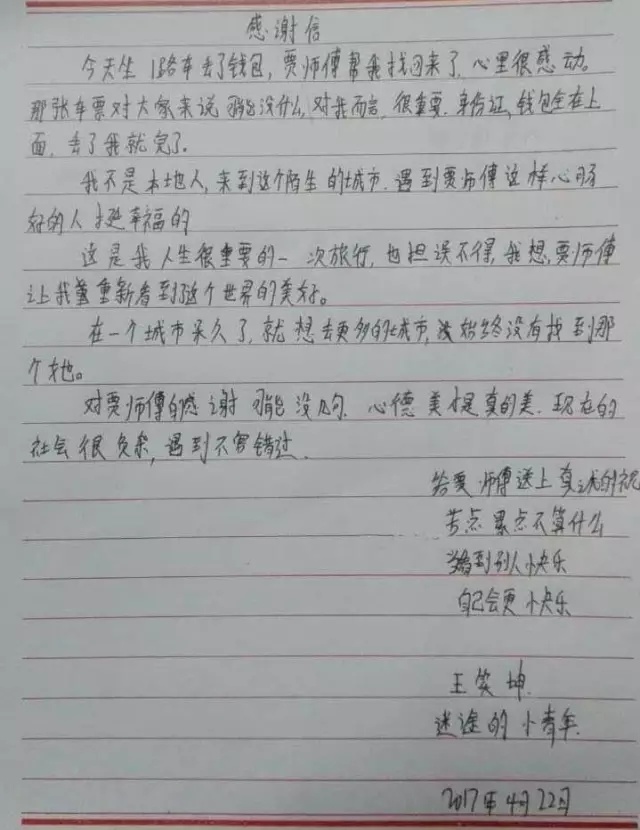 感谢信
今天坐 1路车丢了钱包,贾师傅帮我找回来了,心里很感动。
那张车票对大家来说 可能没什么,对我而言,很重要.身份证,钱包全在上
面,丢了我就完了。
我不是本地人,来到这个陌生的城市.遇到贾师傅这样心肠
好的人 挺幸福的
这是我人生很重要的一次旅行,也担误不得,我想,贾师傅
让我重新看到了这个世界的美好。
在一个城市呆久了,就想去更多的城市,始终没有找到那
个她。
对贾师傅的感谢 可能没几句.心德美才是真的美.现在的
社会很负杂,遇到不害错过.
给贾师傅送上真诚的祝
苦点累点不算什么
看到别人快乐
自己会更快乐
王笑坤
迷途的小青年.
2017年4月22日